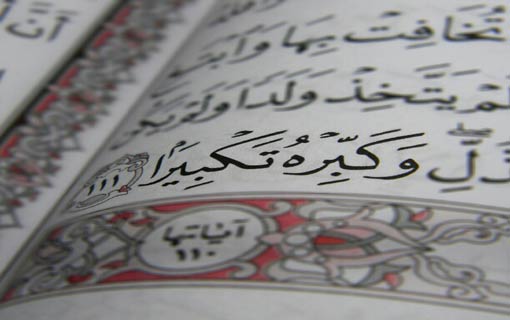 تُخَافِتْ بِهَا وَٱبْتَغِ
لَمْ يَتَّخِذْ وَلَدًا وَلَمْ يَكُن
وَكَبِّرْهُ تَكْبِيرًا ١١١
آياتها
١١٠